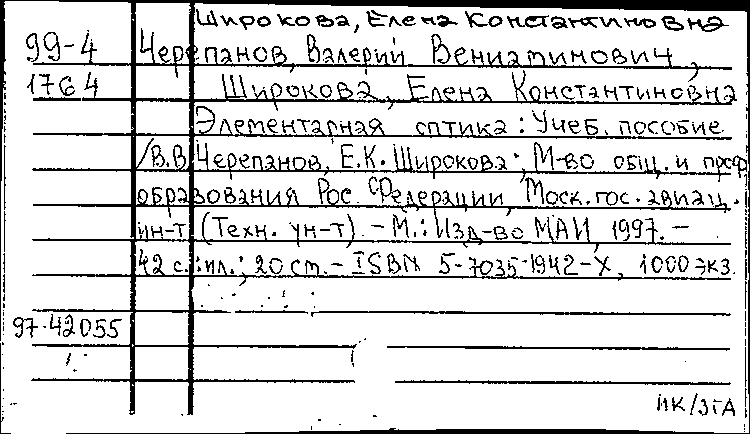 Широкова, Елена Константиновна
99-4 Черепанов, Валерий Вениаминович,
1764 Широкова, Елена Константиновна
Элементарная оптика: Учеб. пособие
/В.В. Черепанов, Е.К. Широкова; М-во общ. и проф.
образования Рос. Федерации, Моск. гос. авиац.
ин-т (Техн. ун-т). - М.: Изд-во МАИ, 1997. -
42 с.: ил.; 20 см. - ISBN 5-7035-1942-X, 1000 экз.
97-42055
НК/ЗГА